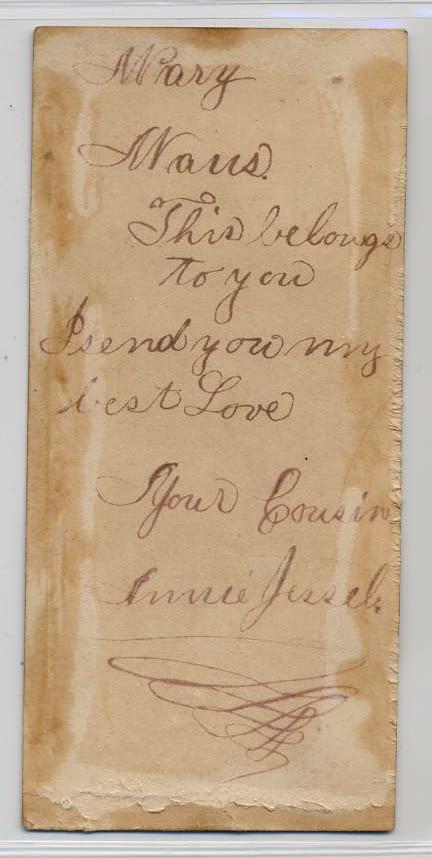 Mary
Naus.
This belongs
to you
I send you my
best Love
Your Cousin
Annie Jessel.